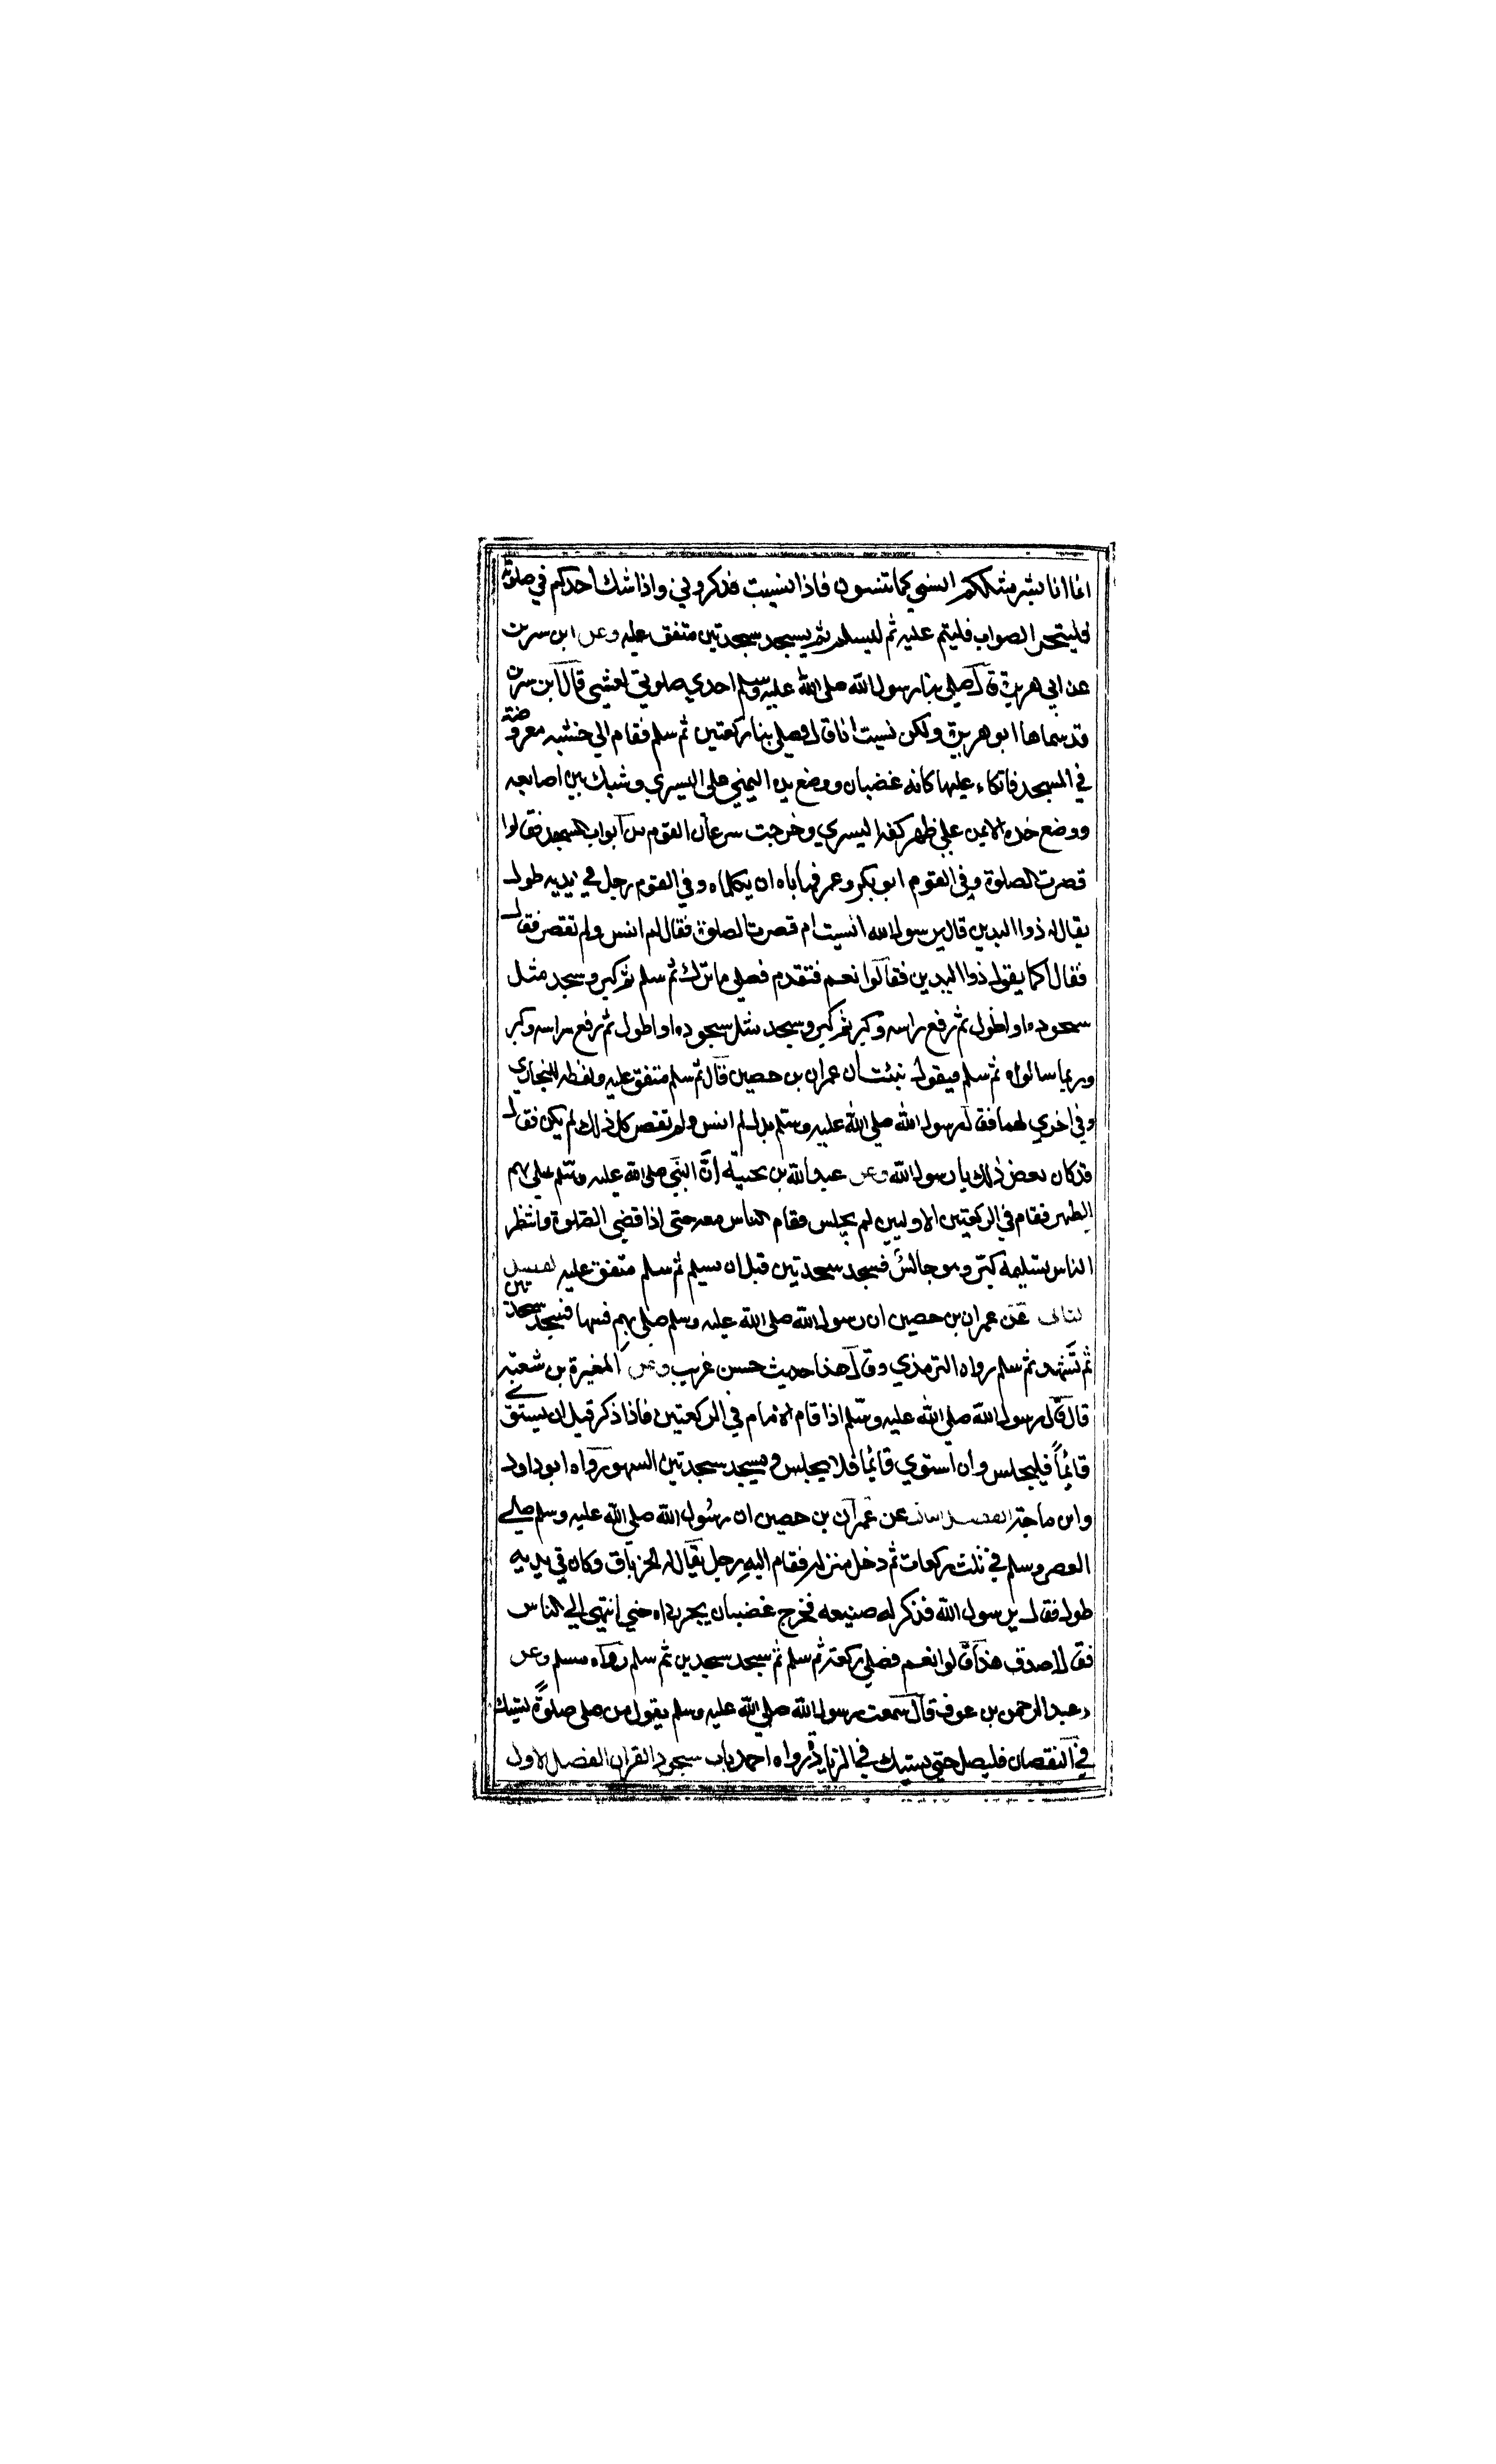 انما انا بشر مثلكم انسي كما تنسون فاذا نسيت فذكروني واذا شك احدكم في صلوته
فليتحر الصواب فليتم عليه ثم ليسلم ثم يسجد سجدتين متفق عليه وعن ابن سرين
عن ابي هريرة قال صلي بنا رسول الله صلي الله عليه وسلم احدي صلوتي العشي قال ابن سرين
قد سماها ابو هريرة ولكن نسيت انا قال فصلي بنا ركعتين ثم سلم فقام الي خشبه معروضة
في المسجد فاتكاء عليها كانه غضبان ووضع يده اليمني علي اليسري وشبك بين اصابعه
ووضع خده الايمن علي ظهر كفه اليسري وخرجت سرعان القوم من ابواب المسجد فقالوا
قصرت الصلوة وفي القوم ابو بكر وعمر فهاباه ان يكلماه وفي القوم رجل في يديه طول
يقال له ذوا اليدين قال يرسول الله انسيت ام قصرت الصلوة فقال لم انس ولم تقصر فقال
فقال اكما يقول ذوا اليدين فقالوا نعم فتقدم فصلي ما ترك ثم سلم ثم كبر وسجد مثل
سجوده او اطول ثم رفع راسه وكبر ثم كبر وسجد مثل سجوده او اطول ثم رفع راسه وكبر
وربما سالوه ثم سلم فيقول نبئت ان عمران بن حصين قال ثم سلم متفق عليه ولفظه للبخاري
وفي اخري لهما فقال رسول الله صلي الله عليه وسلم بدل لم انس ولم تقصر كل ذلك لم يكن فقال
قد كان بعض ذلك يا رسول الله وعن عبد الله بن بحينة ان النبي صلي الله عليه وسلم صلي بهم
الظهر فقام في الركعتين الاوليين لم يجلس فقام الناس معه حتي اذا قضي الصلوة وانتظر
الناس تسليمه كبر وهو جالس فسجد سجدتين قبل ان يسلم ثم سلم متفق عليه الفصل
الثاني عن عمران بن حصين ان رسول الله صلي الله عليه وسلم صلي بهم فسها فسجد سجدتين
ثم تشهد ثم سلم رواه الترمذي وقال هذا حديث حسن غريب وعن المغيرة بن شعبه
قال قال رسول الله صلي الله عليه وسلم اذا قام الامام في الركعتين فاذا ذكر قبل ان يستوي
قائما فليجلس وان استوي قائما فلا يجلس ويسجد سجدتين السهو رواه ابو داود
وابن ماجة الفصل الثالث عن عمران بن حصين ان رسول الله صلي الله عليه وسلم صلي
العصر وسلم في ثلث ركعات ثم دخل منزله فقام اليه رجل يقال له الخرباق وكان في يديه
طول فقال يرسول الله فذكر له صنيعه فخرج غضبان يجر رداه حتي انتهي الي الناس
فقال اصدق هذا قالوا نعم فصلي ركعة ثم سلم ثم سجد سجدين ثم سلم رواه مسلم وعن
عبد الرحمن بن عوف قال سمعت رسول الله صلي الله عليه وسلم يقول من صلي صلوة يشك
في النقصان فليصل حتي يشك في الزيادة رواه احمد باب سجود القران الفصل الاول